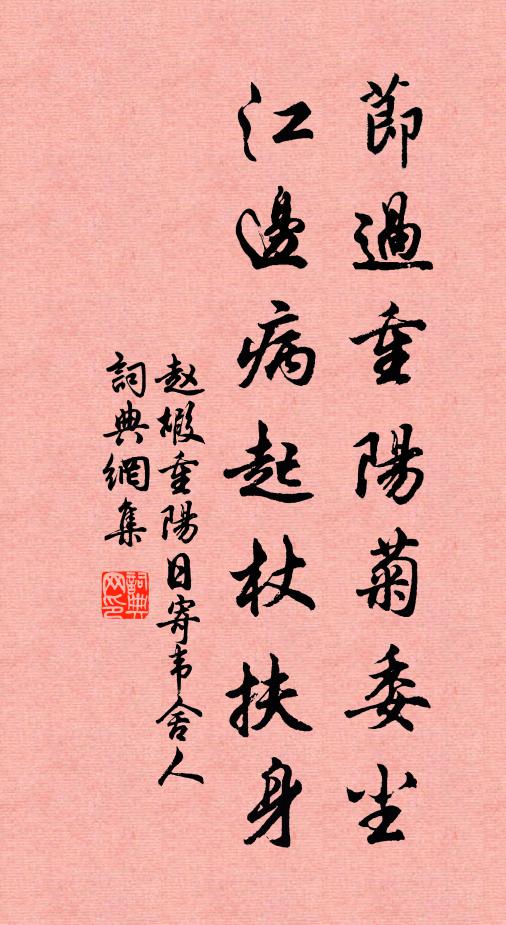 節過重陽菊委尘
江邊病起杖扶身
赵嘏重陽日寄韦舍人
詞典網集
詞典网印